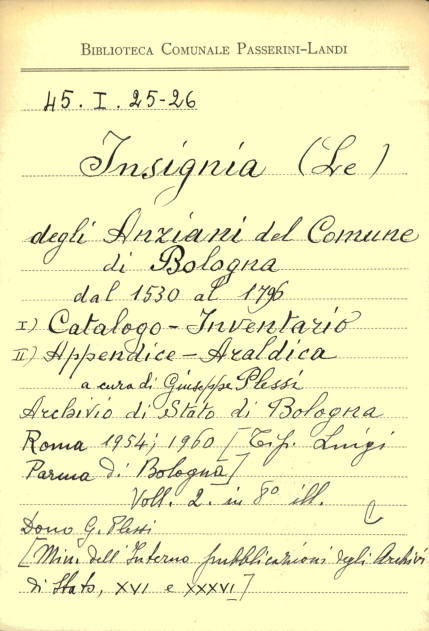 BIBLIOTECA COMUNALE PASSERINI-LANDI
45. I. 25-26
Insignia (Le)
degli Anziani del Comune
di Bologna
dal 1530 al 1796
I) Catalogo-Inventario
II) Appendice-Araldica
a cura di Giuseppe Plessi
Archivio di Stato di Bologna
Roma 1954; 1960 [Tip. Luigi
Parma di Bologna]
Voll. 2. in 8° ill.
Dono G. Plessi
[Min. dell'Interno pubblicazioni degli Archivi
di Stato, XVI e XXXVI]